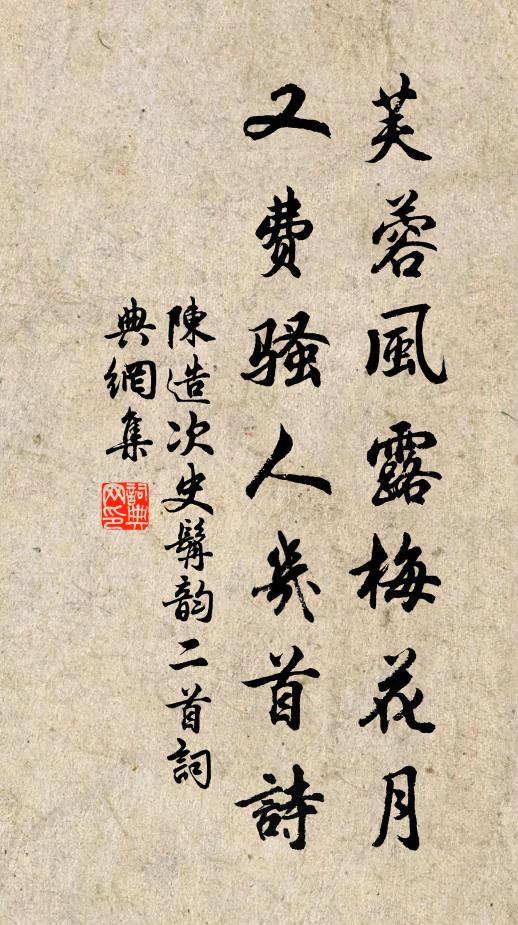 芙蓉風露梅花月
又費騷人幾首詩
陳造次史髯韵二首詞
典網集
詞典網印